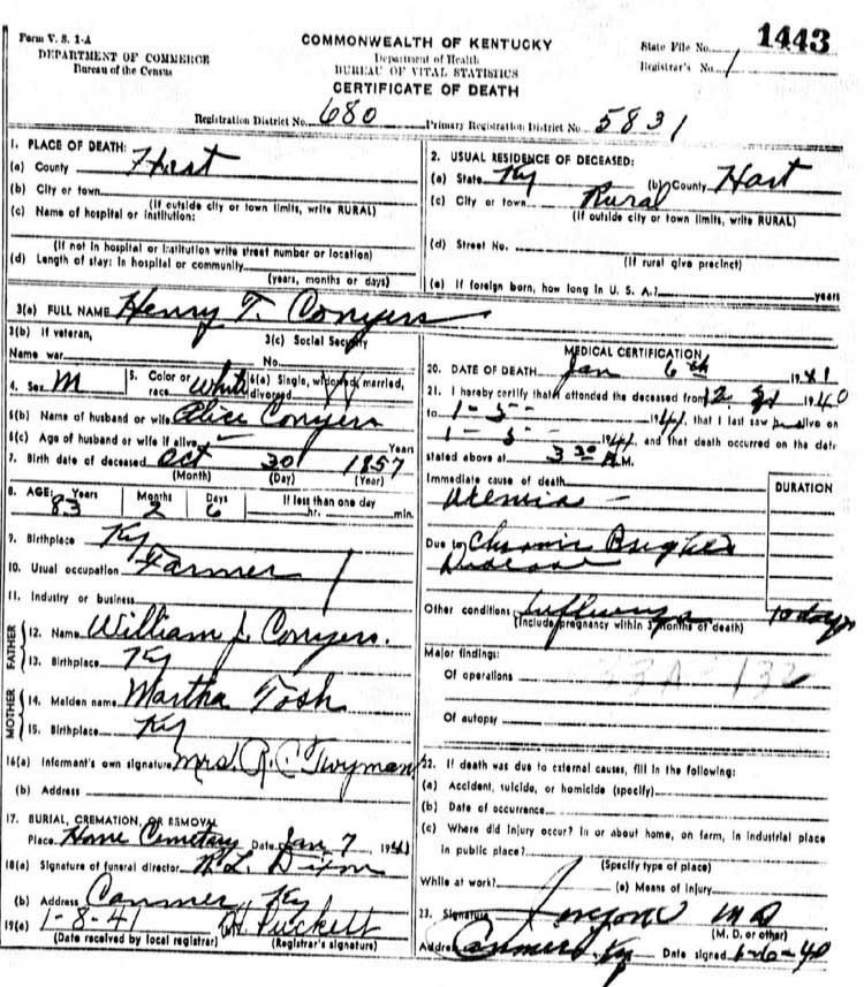 Form V. S. 1-A
DEPARTMENT OF COMMERCE
Bureau of the Census
COMMONWEALTH OF KENTUCKY
Department of Health
BUREAU OF VITAL STATISTICS
CERTIFICATE OF DEATH
State File No. 1443
Registrar's No. 1
Registration District No. 680 Primary Registration District No. 5831
1. PLACE OF DEATH:
(a) County Hart
(b) City or town
(If outside city or town limits, write RURAL)
(c) Name of hospital or institution:
(If not in hospital or institution write street number or location)
(d) Length of stay: In hospital or community
(years, months or days)
2. USUAL RESIDENCE OF DECEASED:
(a) State Ky (b) County Hart
(c) City or town Rural
(If outside city or town limits, write RURAL)
(d) Street No.
(If rural give precinct)
(e) If foreign born, how long in U. S. A.? years
3(a) FULL NAME Henry T. Conyers
3(b) If veteran,
Name war
3(c) Social Security
No.
4. Sex M 5. Color or race White 6(a) Single, widowed, married, divorced W
6(b) Name of husband or wife Alice Conyers
6(c) Age of husband or wife if alive Years
7. Birth date of deceased Oct 30 1857
(Month) (Day) (Year)
8. AGE: Years Months Days If less than one day
83 2 6 hr. min.
9. Birthplace Ky
10. Usual occupation Farmer
11. Industry or business
FATHER
12. Name William J. Conyers.
13. Birthplace Ky
MOTHER
14. Maiden name Martha Tosh
15. Birthplace Ky
16(a) Informant's own signature Mrs. R. C. Twyman
(b) Address
17. BURIAL, CREMATION, OR REMOVAL
Place Home Cemetary Date Jan 7 1941
18(a) Signature of funeral director N. L. Dixon
(b) Address Canmer, Ky
19(a) 1-8-41 H. Puckett
(Date received by local registrar) (Registrar's signature)
MEDICAL CERTIFICATION
20. DATE OF DEATH Jan 6th 1941
21. I hereby certify that I attended the deceased from 12 31 1940
to 1-5- 1941, that I last saw h alive on
1-5- 1941, and that death occurred on the date
stated above at 3 30 A.M.
Immediate cause of death DURATION
Uremia -
Due to Chronic Brights
Disease
Other conditions Influenza 10 days
(Include pregnancy within 3 months of death)
Major findings:
Of operations 33A - 132
Of autopsy
22. If death was due to external causes, fill in the following:
(a) Accident, suicide, or homicide (specify)
(b) Date of occurrence
(c) Where did injury occur? In or about home, on farm, in industrial place
in public place?
(Specify type of place)
While at work? (e) Means of injury
23. Signature MD
(M. D. or other)
Address Canmer, Ky Date signed 1-6-40